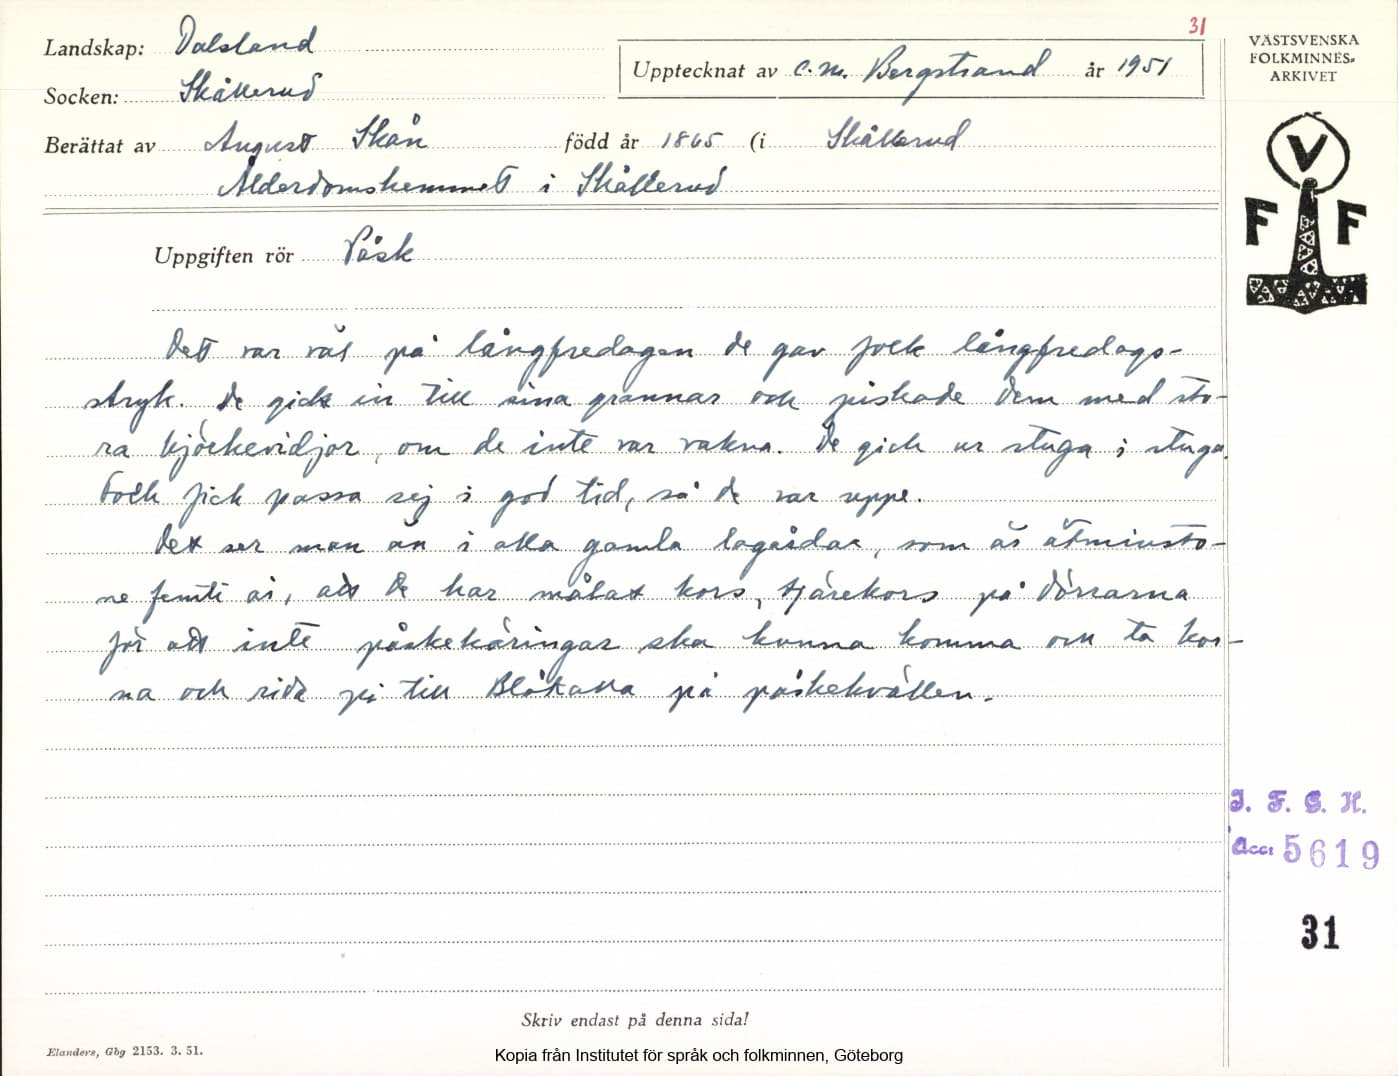 31
Landskap: Dalsland
Upptecknat av C. M. Bergstrand år 1951
Socken: Skållerud
Berättat av August Skån född år 1865 (i Skållerud
Ålderdomshemmet i Skållerud
VÄSTSVENSKA
FOLKMINNES-
ARKIVET
V
F F
Uppgiften rör Påsk
Det var väl på långfredagen de gav folk långfredags-
stryk. De gick in till sina grannar och piskade dem med sto-
ra björkevidjor, om de inte var vakna. De gick ur stuga i stuga.
Folk fick passa sej i god tid, så de var uppe.
Det ser man än i alla gamla lagårdar, som är åtminsto-
ne femti år, att de har målat kors, tjärekors på dörrarna
för att inte påskekäringar ska kunna komma och ta kor-
na och rida på till Blåkulla på påskekvällen.
I. F. G. H.
Acc: 5619
31
Skriv endast på denna sida!
Elanders, Gbg 2153. 3. 51.
Kopia från Institutet för språk och folkminnen, Göteborg